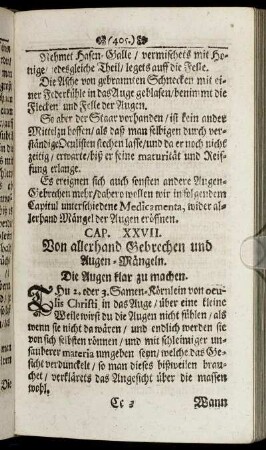 (405.)
Nehmet Hasen-Galle / vermischets mit Ho-
nige / jedesgleiche Theil / legets auff die Felle.
Die Asche von gebrannten Schnecken mit ei-
ner Federkühle in das Auge geblasen / benimmt die
Flecken und Felle der Augen.
So aber der Staar verhanden / ist kein ander
Mittel zu hoffen / als daß man selbigen durch ver-
ständige Oculisten stechen lasse / und da er noch nichs
zeitig / erwarte / biß er seine maturität und Reif-
fung erlange.
Es ereignen sich auch sonsten andere Augen-
Gebrechen mehr / dahero wollen wir in folgendem
Capitul unterschiedene Medicamenta, wider al-
lerhand Mängel der Augen eröffnen.
CAP. XXVII.
Von allerhand Gebrechen und
Augen-Mängeln.
Die Augen klar zu machen.
THu 2. oder 3. Samen-Körnlein von ocu-
lis Christi in das Auge / über eine kleine
Weile wirst du die Augen nicht fühlen / als
wenn sie nicht da wären / und endlich werden sie
von sich selbsten rönnen / und mit schleimiger un-
sauberer materia umgeben seyn / welche das Ge-
sicht verdunckelt / so man dieses bißweilen brau-
chet / verklärets das Angesicht über die massen
wohl.
Cc 3 Wann